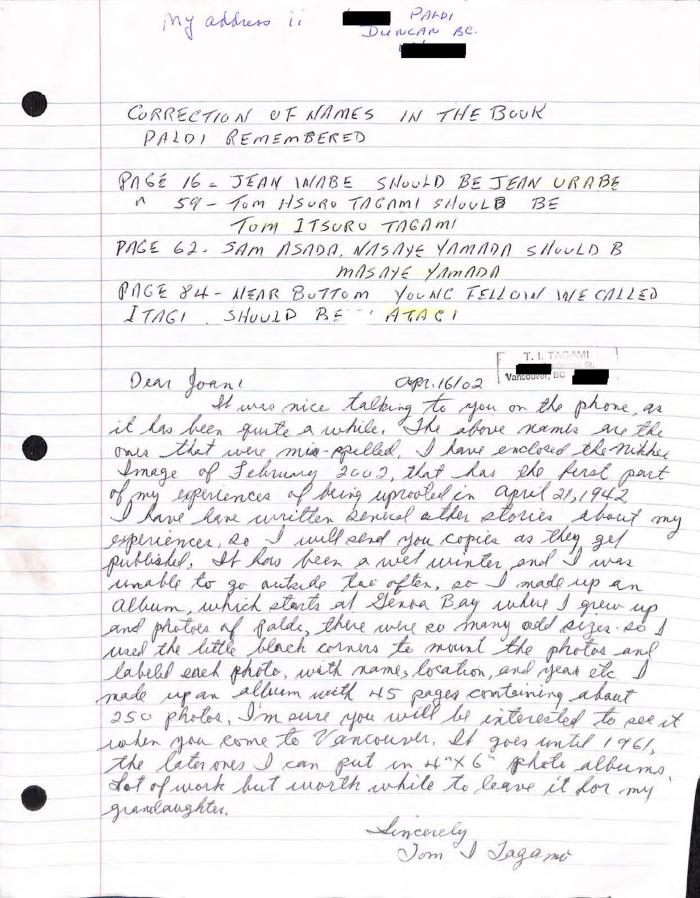 My address is PALDI
DUNCAN BC.
CORRECTION OF NAMES IN THE BOOK
PALDI REMEMBERED
PAGE 16 - JEAN INABE SHOULD BE JEAN URABE
" 59 - TOM HSURO TAGAMI SHOULD BE
TOM ITSURO TAGAMI
PAGE 62 - SAM ASADA, NASAYE YAMADA SHOULD B
MASAYE YAMADA
PAGE 84 - NEAR BOTTOM YOUNG FELLOW WE CALLED
ITAGI SHOULD BE ATAGI
T. I. TAGAMI
Vancouver, BC
Dear Joan: Apr. 16/02
It was nice talking to you on the phone, as
it has been quite a while. The above names are the
ones that were mis-spelled. I have enclosed the Nikkei
Image of February 2002, that has the first part
of my experiences of being uprooted in April 21, 1942
I have have written several other stories about my
experiences, so I will send you copies as they get
published. It has been a wet winter, and I was
unable to go outside too often, so I made up an
album, which starts at Genoa Bay where I grew up
and photoes of Paldi, there were so many odd sizes so I
used the little black corners to mount the photos and
labeled each photo, with name, location, and year etc I
made up an album with 45 pages containing about
250 photos, I'm sure you will be interested to see it
when you come to Vancouver. It goes until 1961,
the later ones I can put in 4"X6" photo albums.
Lot of work but worth while to leave it for my
grandaughter.
Sincerely
Tom I Tagami